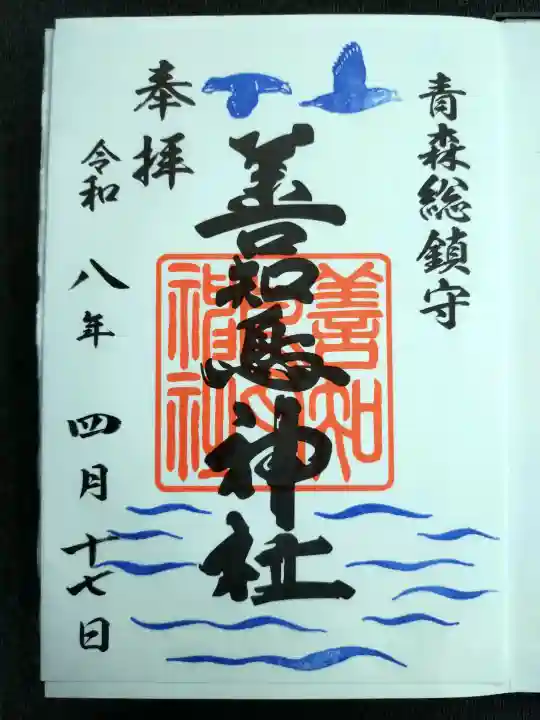 青森総鎮守
奉拝
善知鳥神社
善知鳥神社
令和八年四月十七日